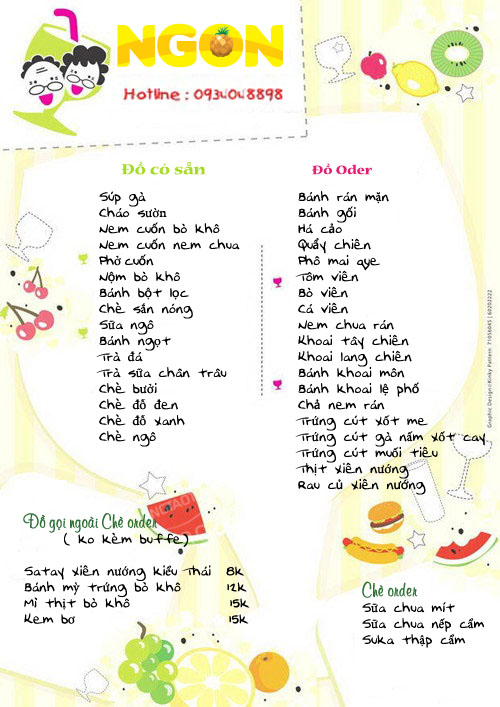 NGON
Hotline : 0934048898
Đồ có sẵn
Súp gà
Cháo sườn
Nem cuốn bò khô
Nem cuốn nem chua
Phở cuốn
Nộm bò khô
Bánh bột lọc
Chè sắn nóng
Sữa ngô
Bánh ngọt
Trà đá
Trà sữa chân trâu
Chè bưởi
Chè đỗ đen
Chè đỗ xanh
Chè ngô
Đồ Oder
Bánh rán mặn
Bánh gối
Há cảo
Quẩy chiên
Phô mai que
Tôm viên
Bò viên
Cá viên
Nem chua rán
Khoai tây chiên
Khoai lang chiên
Bánh khoai môn
Bánh khoai lệ phố
Chả nem rán
Trứng cút xốt me
Trứng cút gà nấm xốt cay
Trứng cút muối tiêu
Thịt xiên nướng
Rau củ xiên nướng
Đồ gọi ngoài Chè order
( ko kèm buffe)
Satay xiên nướng kiểu Thái 8k
Bánh mỳ trứng bò khô 12k
Mì thịt bò khô 15k
Kem bơ 15k
Chè order
Sữa chua mít
Sữa chua nếp cẩm
Suka thập cẩm
Graphic Design@Kinky Pattern 71056045 | 60203222